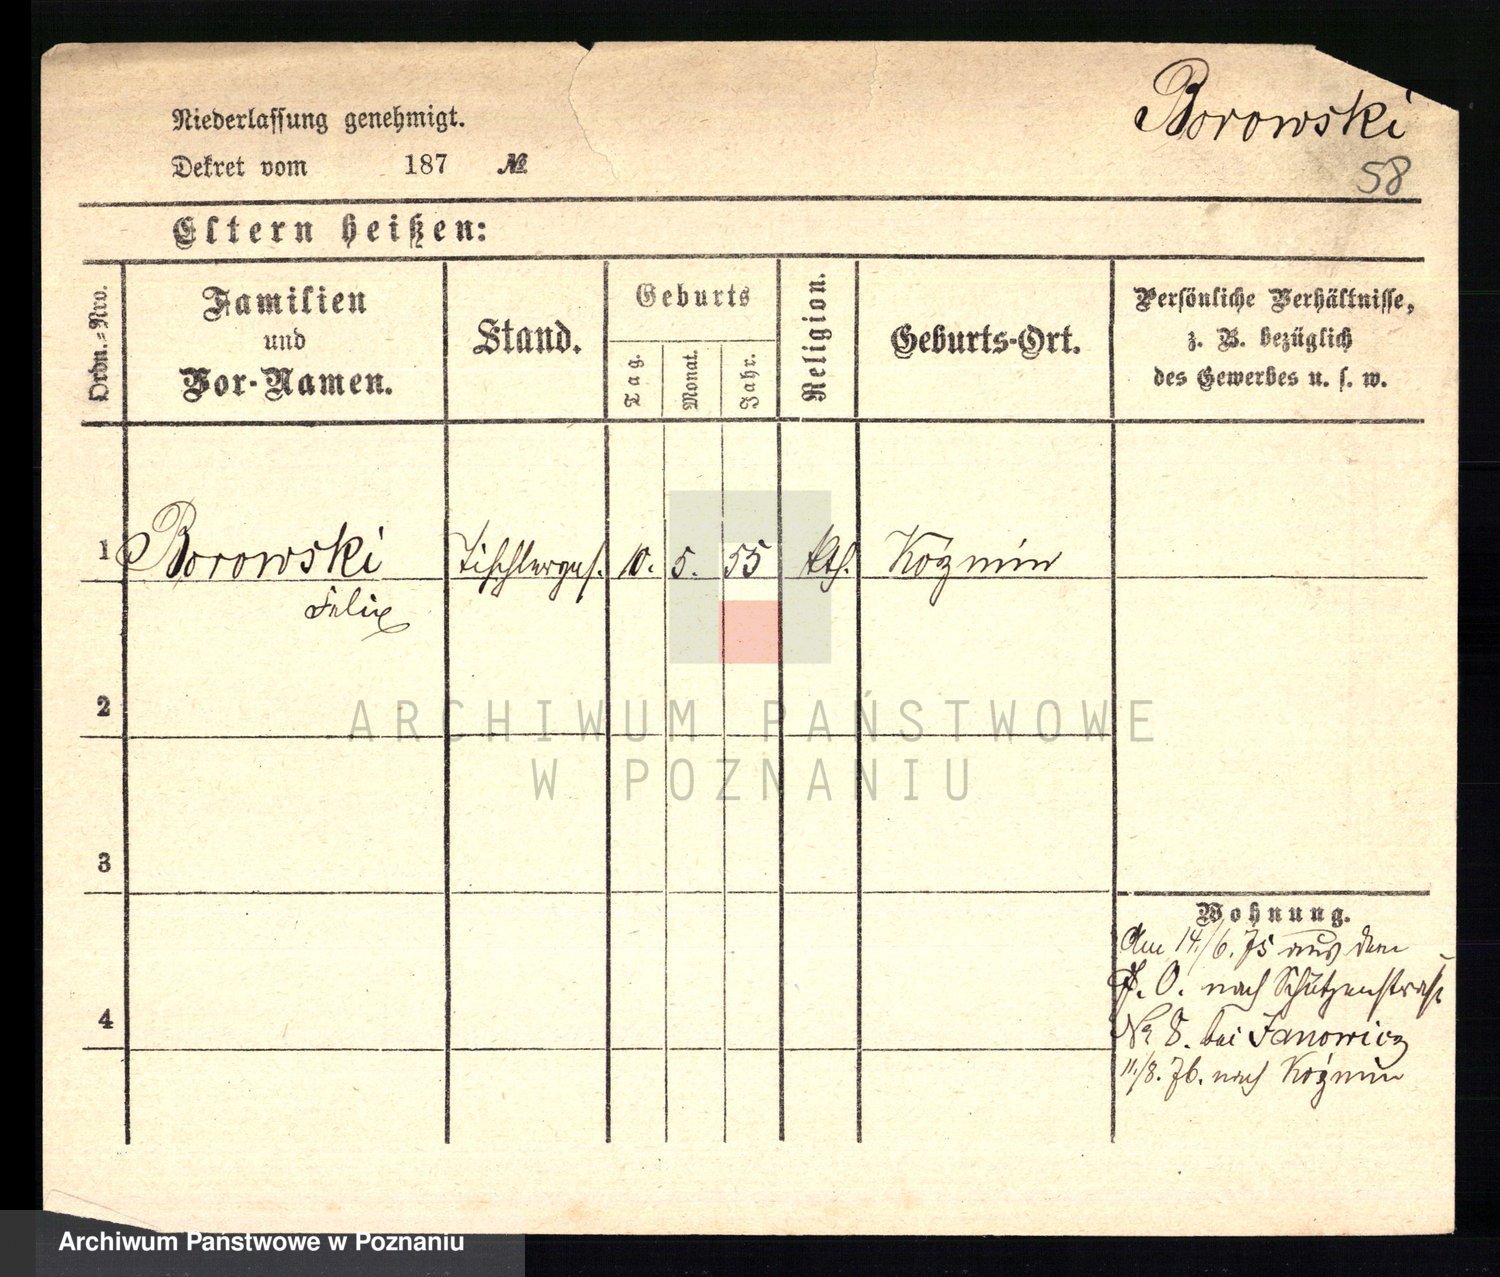 Borowski
58
Niederlassung genehmigt.
Dekret vom 187 №
Eltern heißen:
Ordn.-Nro.
Familien
und
Vor-Namen.
Stand.
Geburts
Tag.
Monat.
Jahr.
Religion.
Geburts-Ort.
Persönliche Verhältnisse,
z. B. bezüglich
des Gewerbes u. s. w.
1 Borowski Tischlerges. 10. 5. 55 kth. Kozmin
Felix
2
3
4
Wohnung.
Am 14./6. 75 aus dem
P. O. nach Schützenstraße
№ 8. bei Janowicz
11./8. 76. nach Kozmin
ARCHIWUM PAŃSTWOWE
W POZNANIU
Archiwum Państwowe w Poznaniu